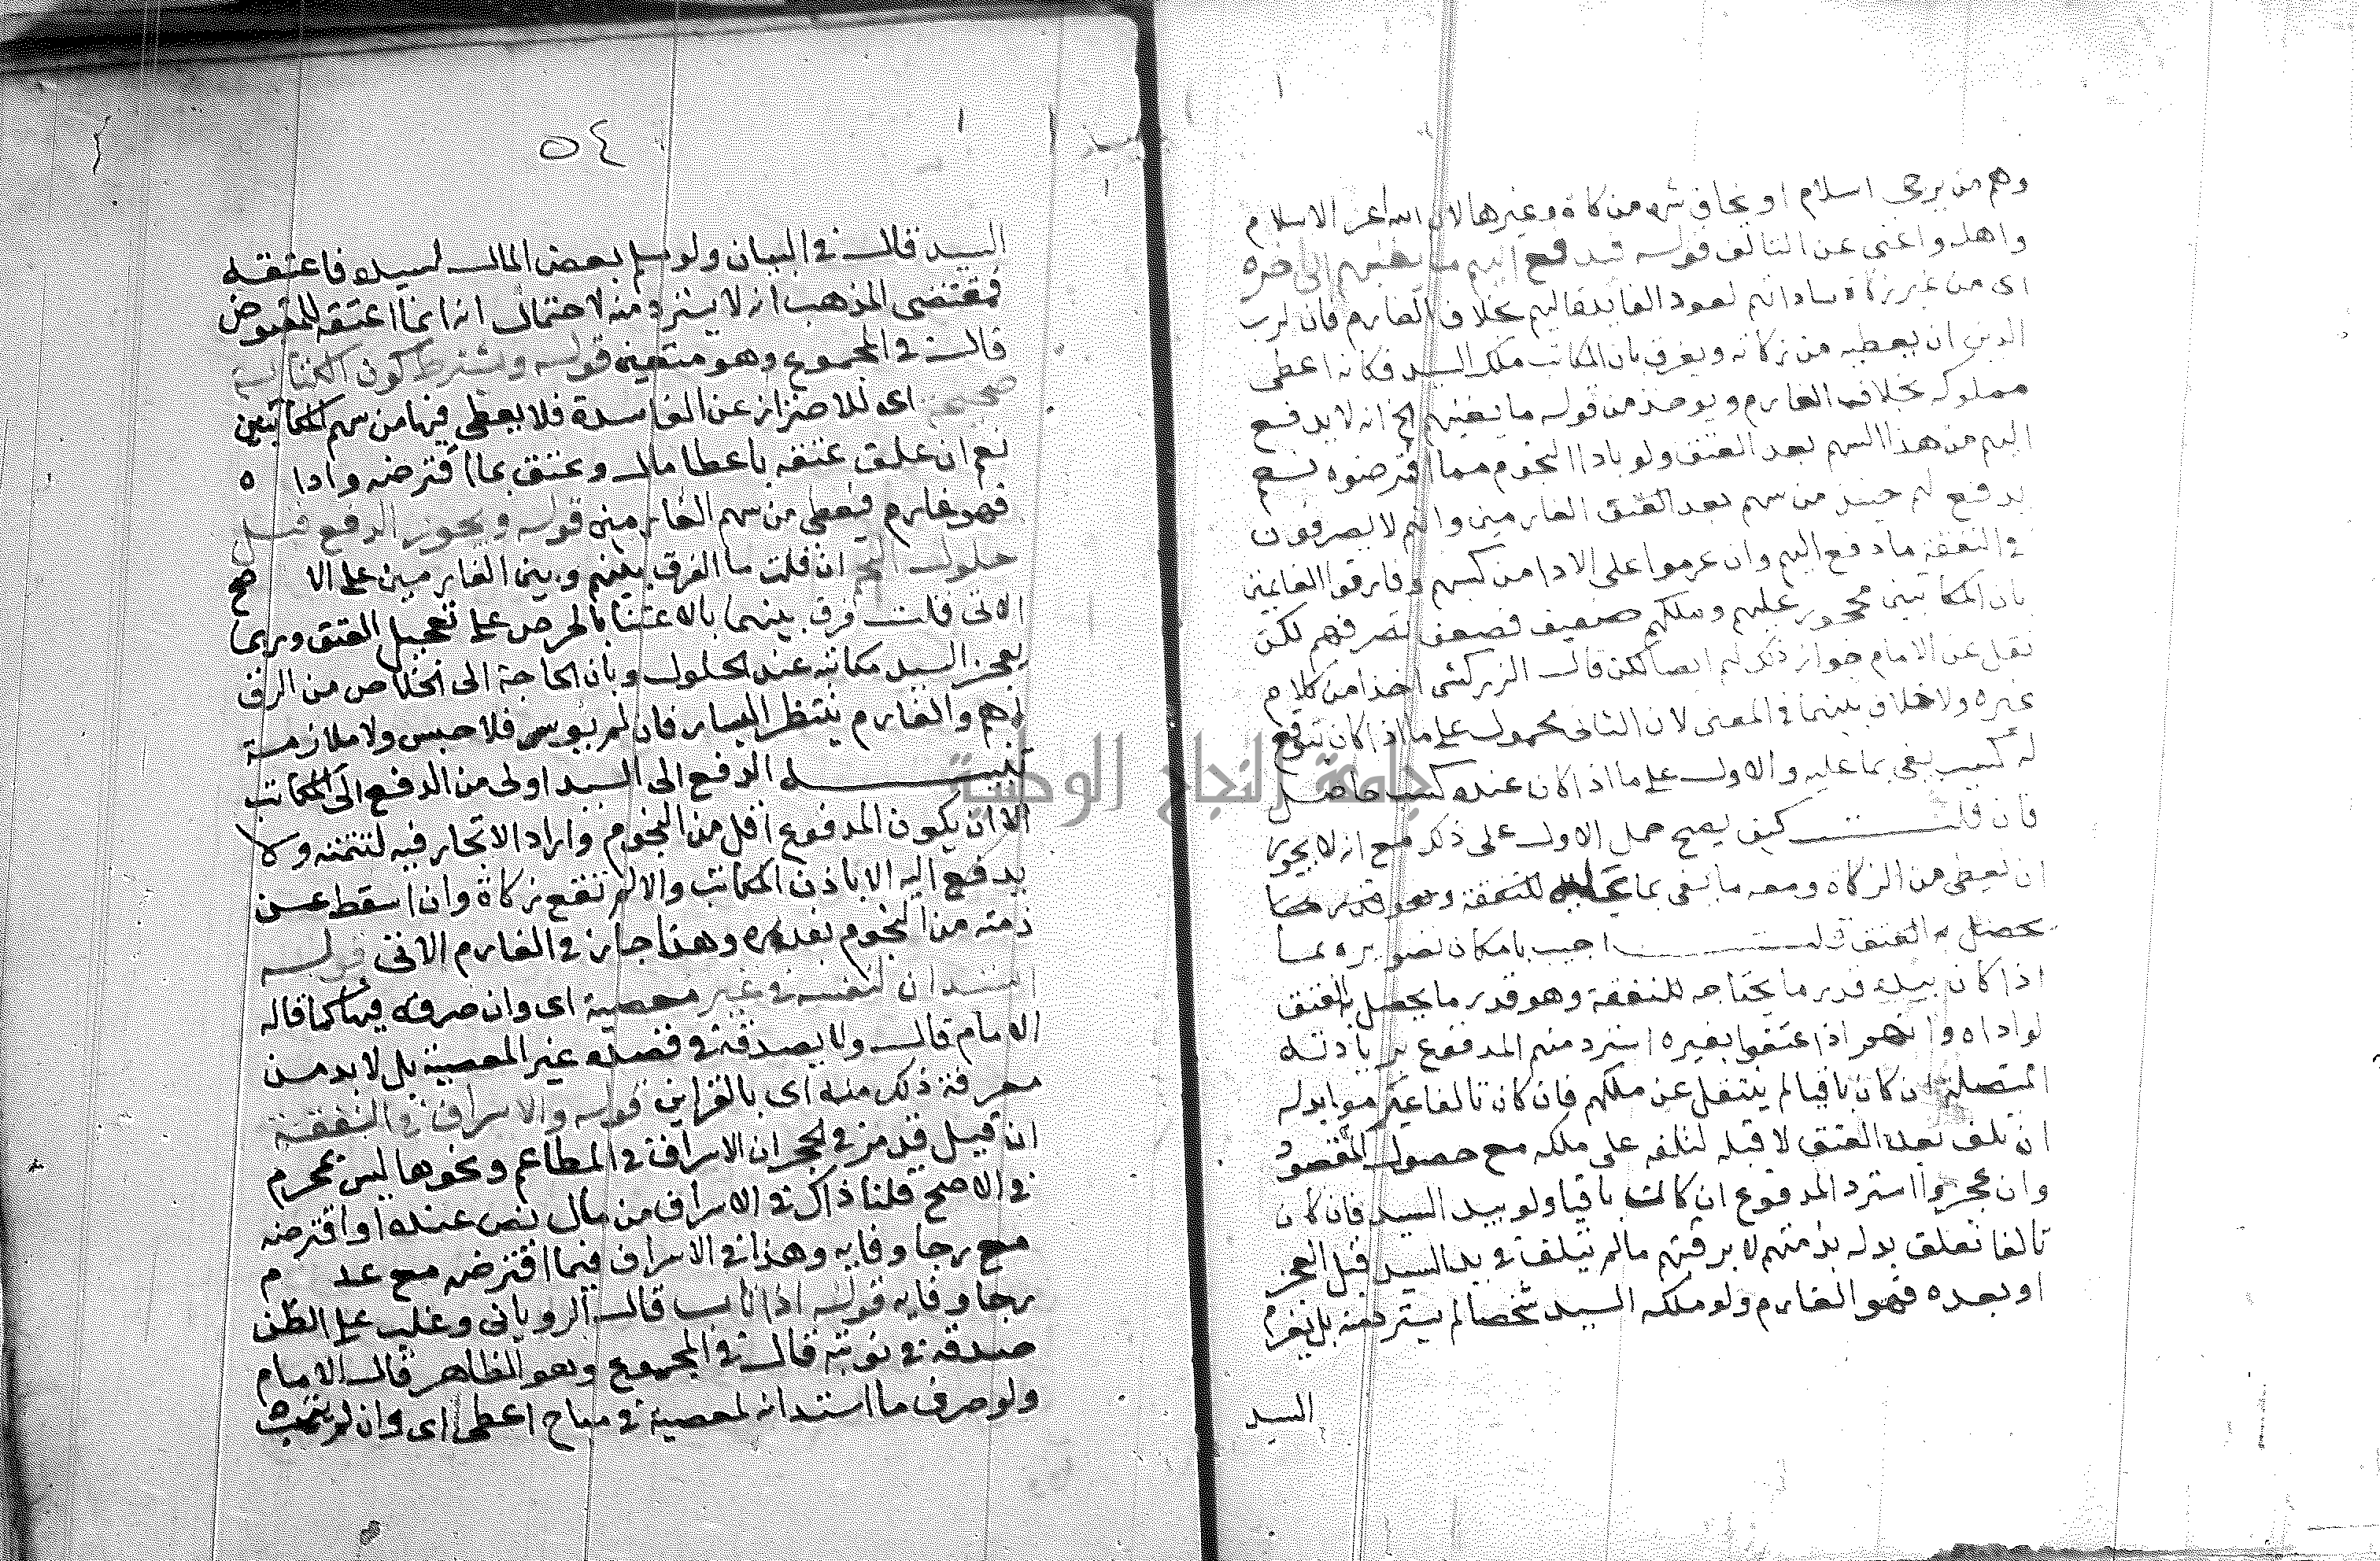 وهم من يرجى اسلام او يخاف شره من زكاة وغيرها لان الله اعز الاسلام
واهله واغنى عن التالف قوله فيدفع اليهم ما يعينهم الى اخره
اى من غير زكاة ساداتهم لعود الفايدة اليهم بخلاف الغارم فان لرب
الدين ان يعطيه من زكاته ويفرق بان المكاتب ملك السيد فكانه اعطى
مملوكه بخلاف الغارم ويوخذ من قوله ما يعينهم الخ انه لا يدفع
اليهم من هذا السهم بعد العتق ولو باداا النجوم مما اقترضوه نعم
يدفع لهم حينئذ من سهم بعد العتق الغارمين وانهم لا يصرفون
فى النفقة ما دفع اليهم وان عزموا على الادا من كسبهم وفارقوا الغارمين
بان المكاتبين محجور عليهم وملكهم ضعيف فضعف تصرفهم لكن
نقل عن الامام جواز ذلك لهم ايضا لكن قال الزركشى اخذا من كلام
غيره ولا خلاف بينهما فى المعنى لان الثانى محمول على ما اذا كان تتوقع
له كسب يفى بما عليه والاول على ما اذا كان عنده كسب حاصل
فان قلت كيف يصح حمل الاول على ذلك مع انه لا يجوز
ان يعطى من الزكاة ومعه ما يفى بما للنفقة وهو قدر ما
يحصل به العتق قلت اجيب بامكان تصويره بما
اذا كان بيده قدر ما يحتاجه للنفقة وهو قدر ما يحصل به العتق
لو اداه وانهم اذا عتقوا بغيره استرد منهم المدفوع بزيادته
المتصلة ان كان باقيا لم ينتقل عن ملكهم فان كان تالفا غرموا بدله
ان تلف بعد العتق لا قبله لتلفه على ملكه مع حصول المقصود
وان عجزوا استرد المدفوع ان كان باقيا ولو بيد السيد فان كان
تالفا تعلق بدله بذمتهم لا برقبتهم ما لم يتلف فى يد السيد قبل العجز
او بعده فهو الغارم ولو ملكه السيد شخصا لم يسترد منه بل يغرم
السيد
٥٤
السيد قال فى البيان ولو سلم بعض المال لسيده فاعتقه
فمقتضى المذهب انه لا يسترد منه لاحتمال انه انما اعتقه للمقبوض
قال فى المجموع وهو متعين قوله ويشترط كون الكتابة
صحيحة اى للاحتراز عن الفاسدة فلا يعطى فيها من سهم المكاتبين
نعم ان علق عتقه باعطا مال وعتق بما اقترضه وادا ه
فهو غارم فيعطى من سهم الغارمين قوله ويجوز الدفع قبل
حلول النجم ان قلت ما الفرق بينهم وبين الغارمين على الا صح
الاتى قلت فرق بينهما بالاعتنا بالحرص على تعجيل العتق وربما
يعجز السيد مكاتبه عند الحلول وبان الحاجة الى الخلاص من الرق
اهم والغارم ينتظر اليسار فان لم يوسر فلا حبس ولا ملازمة
تنبيه الدفع الى السيد اولى من الدفع الى المكاتب
الا ان يكون المدفوع اقل من النجوم واراد الاتجار فيه لتنميته ولا
يدفع اليه الا باذن المكاتب والا لم تقع زكاة وان اسقط عن
ذمته من النجوم بقدره وهذا جار فى الغارم الاتى قوله
استدان لنفسه فى غير معصية اى وان صرفه فيها كما قاله
الامام قال ولا يصدق فى قصده غير المعصية بل لا بد من
معرفة ذلك منه اى بالقراين قوله والاسراف فى النفقة
ان قيل قد مر فى الحجر ان الاسراف فى المطاعم ونحوها ليس بمحرم
فى الاصح قلنا ذاك فى الاسراف من مال نض عنده او اقترضه
مع رجا وفايه وهذا فى الاسراف فيما اقترضه مع عد م
رجا وفايه قوله اذا تاب قال الرويانى وغلب على الظن
صدقه فى توبته قال فى المجموع وهو الظاهر قال الامام
ولو صرف ما استدانه لمعصية فى مباح اعطى اى وان لم يتب
جامعة النجاح الوطنية